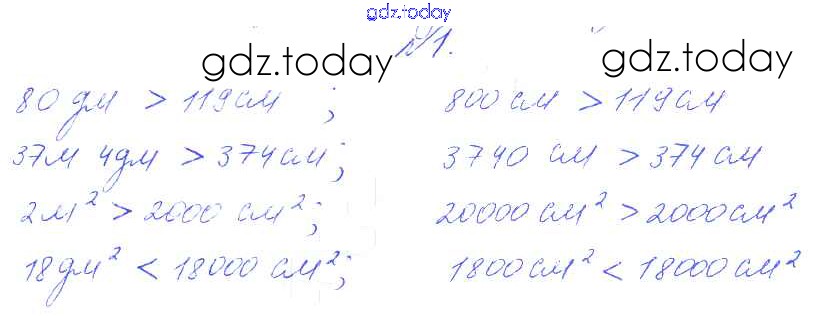 gdz.today
gdz.today №1. gdz.today
80 дм > 119 см ; 800 см > 119 см
37м 4дм > 374 см ; 3740 см > 374 см
2м² > 2000 см² ; 20000 см² > 2000 см²
18дм² < 18000 см² ; 1800 см² < 18000 см²